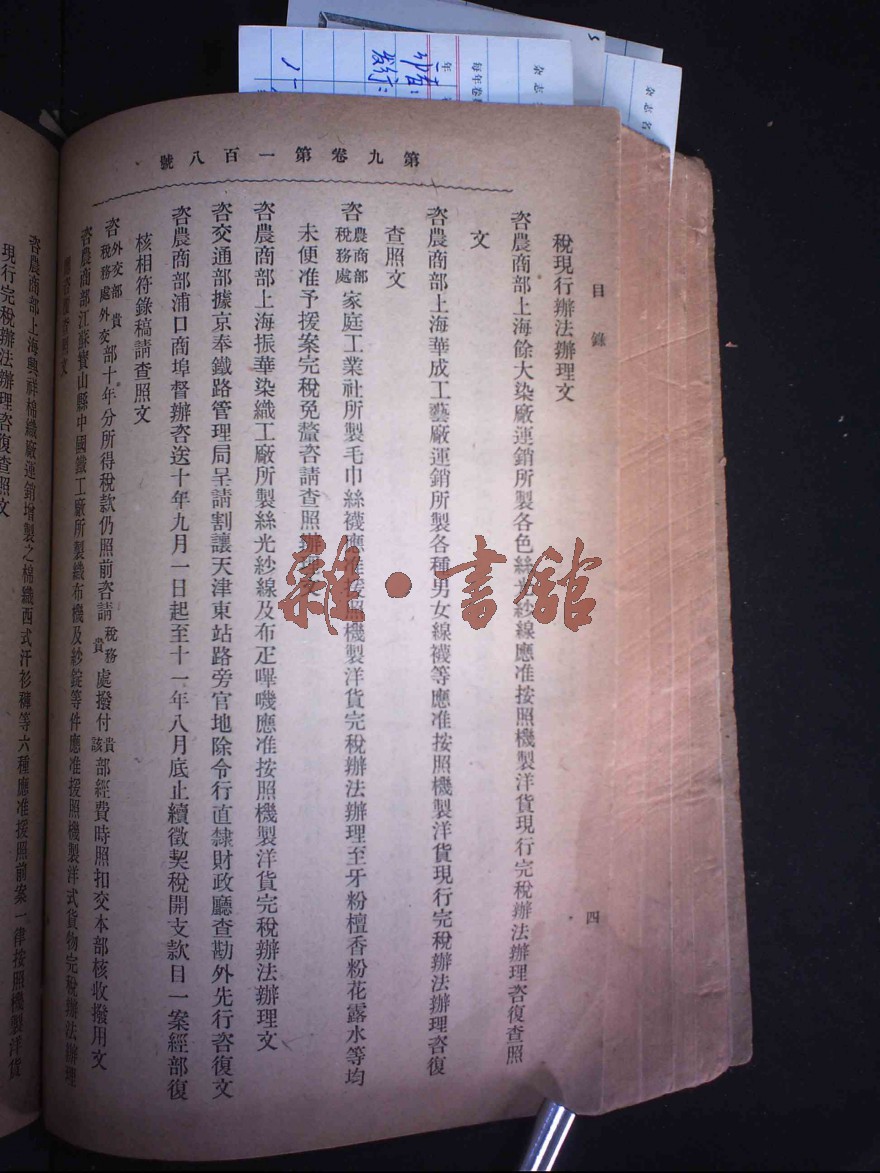 第九卷第一百八號
目錄
四
稅現行辦法辦理文
咨農商部上海餘大染廠運銷所製各色絲光紗線應准按照機製洋貨現行完稅辦法辦理咨復查照
文
咨農商部上海華成工藝廠運銷所製各種男女線襪等應准按照機製洋貨現行完稅辦法辦理咨復
查照文
咨農商部稅務處家庭工業社所製毛巾絲襪應准按照機製洋貨完稅辦法辦理至牙粉檀香粉花露水等均
未便准予援案完稅免釐咨請查照辦理文
咨農商部上海振華染織工廠所製絲光紗線及布疋嗶嘰應准按照機製洋貨完稅辦法辦理文
咨交通部據京奉鐵路管理局呈請割讓天津東站路旁官地除令行直隸財政廳查勘外先行咨復文
咨農商部浦口商埠督辦咨送十年九月一日起至十一年八月底止續徵契稅開支款目一案經部復
核相符錄稿請查照文
咨外交部稅務處貴外交部十年分所得稅款仍照前咨請稅務貴處撥付貴該部經費時照扣交本部核收撥用文
咨農商部江蘇寶山縣中國鐵工廠所製織布機及紗錠等件應准援照機製洋式貨物完稅辦法辦理
咨復查照文
咨農商部上海興祥棉織廠運銷增製之棉織西式汗衫褲等六種應准援照前案一律按照機製洋貨
現行完稅辦法辦理咨復查照文
雜·書館
杂志名
每年卷
年
发行
杂志名
5